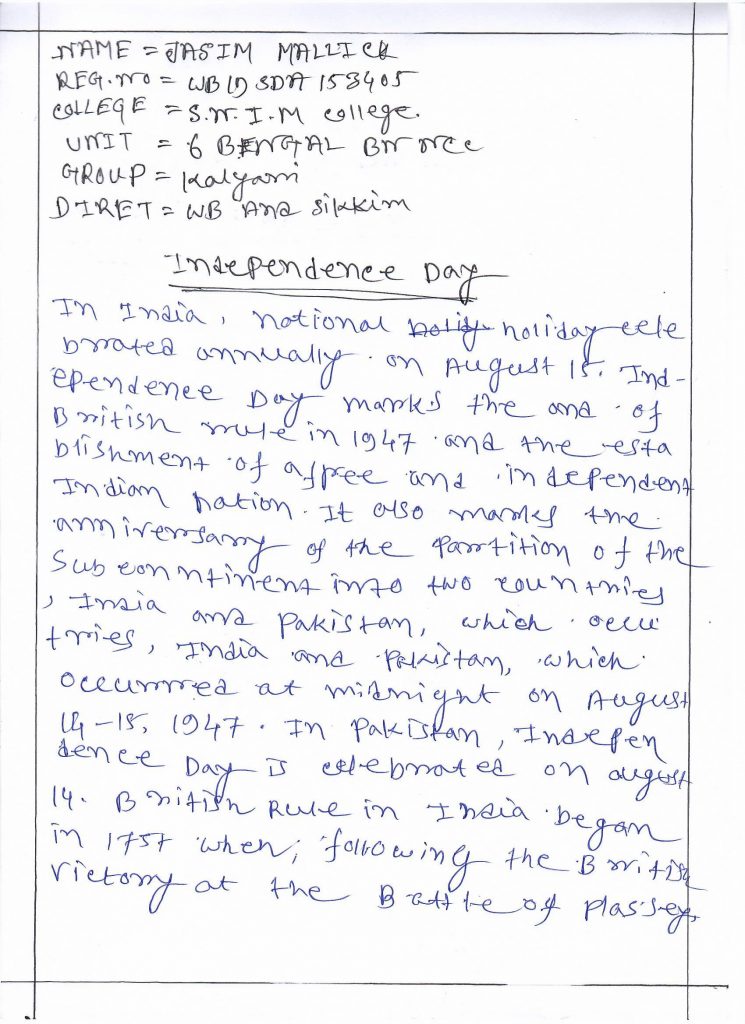 NAME = JASIM MALLICK
REG.NO = WB19SDA153405
COLLEGE = S.N.I.M college.
UNIT = 6 BENGAL BN NCC
GROUP = Kalyani
DIRET = WB And Sikkim
Independence Day
In India, national holiy holiday cele
brated annually on August 15. Ind-
ependence Day marks the and of
British rule in 1947 and the esta
blishment of a free and independent
Indian nation. It also marks the
anniversary of the Partition of the
Subconntinent into two countries
, India and Pakistan, which occu
tries, India and Pakistan, which
occurred at midnight on August
14-15, 1947. In Pakistan, Indepen
dence Day is celebrated on august
14. British Rule in India began
in 1757 when, following the British
victory at the Battle of Plassey,